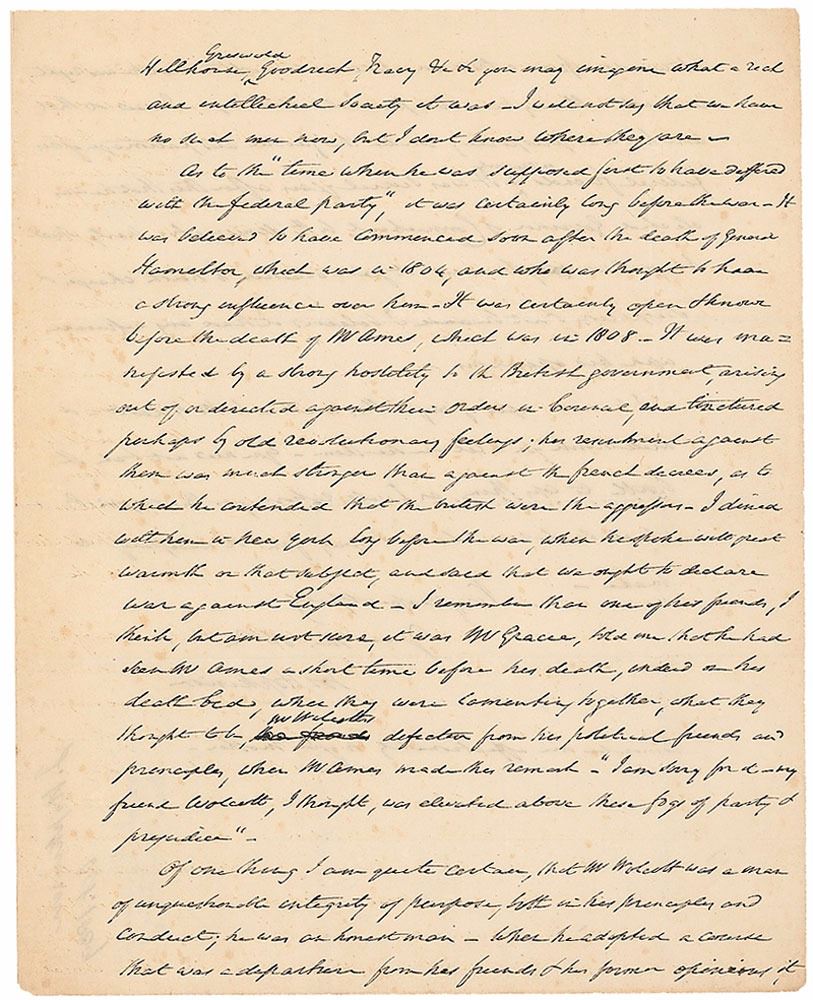 Griswold
Hillhouse, Goodrich, Tracy &c &c you may imagine what a rich
and intellectual society it was – I will not say that we have
no such men now, but I dont know where they are –
As to the "time when he was supposed first to have differed
with the federal party", it was certainly long before the war – It
was believed to have commenced soon after the death of General
Hamilton, which was in 1804, and who was thought to have
a strong influence over him – It was certainly open & known
before the death of Mr Ames, which was in 1808 – It was ma=
nifested by a strong hostility to the British government, arising
out of, or directed against their orders in Council, and tinctured
perhaps by old revolutionary feelings; his resentment against
them was much stronger than against the french decrees, as to
which he contended that the british were the aggressors – I dined
with him in New York long before the war, when he spoke with great
warmth on that subject, and said that we ought to declare
war against England – I remember than one of his friends, I
think, but am not sure, it was Mr Gracie, told me that he had
seen Mr Ames a short time before his death, indeed on his
death bed, when they were lamenting together, what they
Mr Wolcotts
thought to be, defection from his political friends and
principles, when Mr Ames made this remark – "I am sorry for it – my
friend Wolcott, I thought, was elevated above these fogs of party &
prejudice" –
Of one thing I am quite certain, that Mr Wolcott was a man
of unquestionable integrity of purpose, both in his principles and
conduct; he was an honest man – when he adopted a course
that was a departure from his friends & his former opinions it